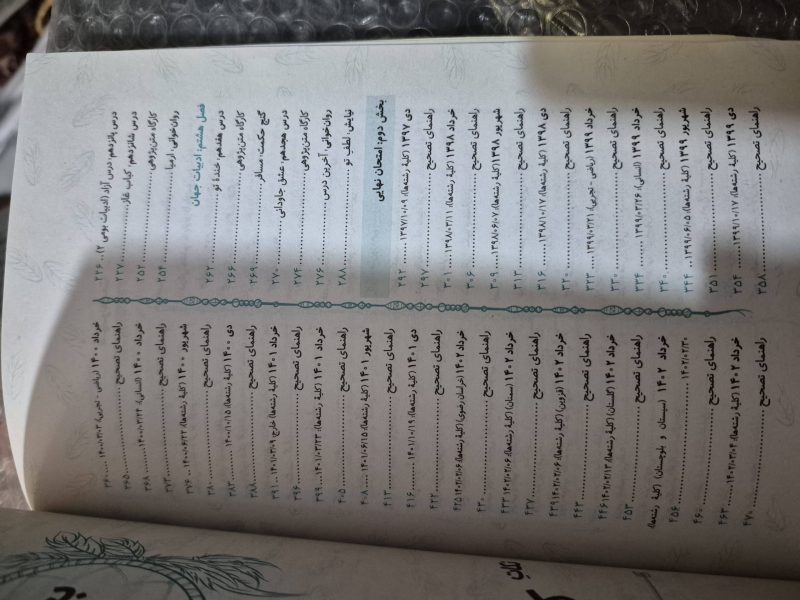 درس پانزدهم: درس آزاد (ادبیات بومی ۲) ... ۲۴۶
درس شانزدهم: کباب غاز ... ۲۴۷
کارگاه متن‌پژوهی ... ۲۵۲
روان‌خوانی: ارمیا ... ۲۵۴
فصل هشتم: ادبیات جهان
درس هفدهم: خندهٔ تو ... ۲۶۲
کارگاه متن‌پژوهی ... ۲۶۶
گنج حکمت: مسافر ... ۲۶۹
درس هجدهم: عشق جاودانی ... ۲۷۰
کارگاه متن‌پژوهی ... ۲۷۴
روان‌خوانی: آخرین درس ... ۲۷۶
نیایش: لطف تو ... ۲۸۸
بخش دوم: امتحان نهایی
دی ۱۳۹۷ (کلیهٔ رشته‌ها): ۱۳۹۷/۱۰/۰۹ ... ۲۹۳
راهنمای تصحیح ... ۲۹۷
خرداد ۱۳۹۸ (کلیهٔ رشته‌ها): ۱۳۹۸/۰۳/۱۱ ... ۳۰۱
راهنمای تصحیح ... ۳۰۶
شهریور ۱۳۹۸ (کلیهٔ رشته‌ها): ۱۳۹۸/۰۶/۰۷ ... ۳۰۹
راهنمای تصحیح ... ۳۱۳
دی ۱۳۹۸ (کلیهٔ رشته‌ها): ۱۳۹۸/۱۰/۱۷ ... ۳۱۶
راهنمای تصحیح ... ۳۲۰
خرداد ۱۳۹۹ (ریاضی - تجربی): ۱۳۹۹/۰۳/۲۱ ... ۳۲۳
راهنمای تصحیح ... ۳۳۰
خرداد ۱۳۹۹ (انسانی): ۱۳۹۹/۰۳/۲۶ ... ۳۳۴
راهنمای تصحیح ... ۳۴۰
شهریور ۱۳۹۹ (کلیهٔ رشته‌ها): ۱۳۹۹/۰۶/۰۵ ... ۳۴۴
راهنمای تصحیح ... ۳۵۱
دی ۱۳۹۹ (کلیهٔ رشته‌ها): ۱۳۹۹/۱۰/۱۷ ... ۳۵۴
راهنمای تصحیح ... ۳۵۸
خرداد ۱۴۰۰ (ریاضی - تجربی): ۱۴۰۰/۰۳/۰۳ ... ۳۶۰
راهنمای تصحیح ... ۳۶۵
خرداد ۱۴۰۰ (انسانی): ۱۴۰۰/۰۳/۲۴ ... ۳۶۸
راهنمای تصحیح ... ۳۷۳
شهریور ۱۴۰۰ (کلیهٔ رشته‌ها): ۱۴۰۰/۰۶/۲۲ ... ۳۷۶
راهنمای تصحیح ... ۳۸۰
دی ۱۴۰۰ (کلیهٔ رشته‌ها): ۱۴۰۰/۱۰/۱۵ ... ۳۸۳
راهنمای تصحیح ... ۳۸۸
خرداد ۱۴۰۱ (کلیهٔ رشته‌ها) خارج: ۱۴۰۱/۰۳/۰۹ ... ۳۹۱
راهنمای تصحیح ... ۳۹۶
خرداد ۱۴۰۱ (کلیهٔ رشته‌ها): ۱۴۰۱/۰۳/۲۳ ... ۳۹۹
راهنمای تصحیح ... ۴۰۵
شهریور ۱۴۰۱ (کلیهٔ رشته‌ها): ۱۴۰۱/۰۶/۱۵ ... ۴۰۸
راهنمای تصحیح ... ۴۱۳
دی ۱۴۰۱ (کلیهٔ رشته‌ها): ۱۴۰۱/۱۰/۱۹ ... ۴۱۶
راهنمای تصحیح ... ۴۲۲
خرداد ۱۴۰۲ (خراسان رضوی) (کلیهٔ رشته‌ها): ۱۴۰۲/۰۲/۰۶ ۴۲۵
راهنمای تصحیح ... ۴۳۰
خرداد ۱۴۰۲ (سمنان) (کلیهٔ رشته‌ها): ۱۴۰۲/۰۲/۰۶ ۴۳۳
راهنمای تصحیح ... ۴۳۷
خرداد ۱۴۰۲ (قزوین) (کلیهٔ رشته‌ها): ۱۴۰۲/۰۲/۰۶
راهنمای تصحیح ... ۴۴۳
خرداد ۱۴۰۲ (گلستان) (کلیهٔ رشته‌ها): ۱۴۰۲/۰۲/۱۳ ۴۴۶
راهنمای تصحیح ... ۴۵۳
خرداد ۱۴۰۲ (سیستان و بلوچستان) (کلیهٔ رشته‌ها):
۱۴۰۲/۰۲/۳۰ ... ۴۵۶
راهنمای تصحیح ... ۴۶۰
خرداد ۱۴۰۲ (کلیهٔ رشته‌ها): ۱۴۰۲/۰۳/۰۴ ... ۴۶۳
راهنمای تصحیح ... ۴۷۰
نکات